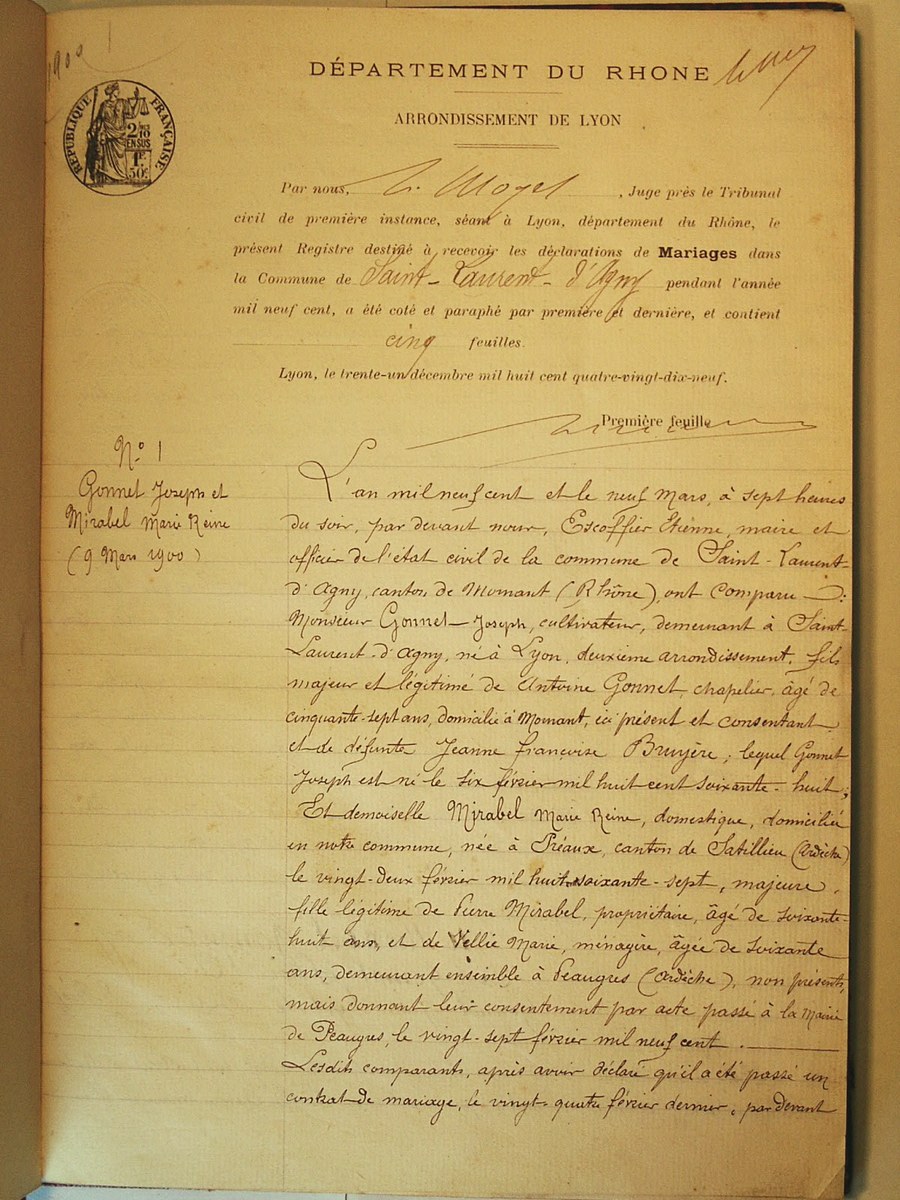 1900
DÉPARTEMENT DU RHONE
ARRONDISSEMENT DE LYON
RÉPUBLIQUE FRANÇAISE
2/10
EN SUS
1F
50c
Par nous, , Juge près le Tribunal
civil de première instance, séant à Lyon, département du Rhône, le
présent Registre destiné à recevoir les déclarations de Mariages dans
la Commune de Saint-Laurent-d'Agny pendant l'année
mil neuf cent, a été coté et paraphé par première et dernière, et contient
cinq feuilles.
Lyon, le trente-un décembre mil huit cent quatre-vingt-dix-neuf.
Première feuille
N° 1
Gonnet Joseph et
Mirabel Marie Reine
(9 Mars 1900)
L'an mil neuf cent et le neuf Mars, à sept heures
du soir, par devant nous, Escoffier Etienne, maire et
officier de l'état civil de la commune de Saint-Laurent
d'Agny, canton de Mornant (Rhône), ont comparu :
Monsieur Gonnet Joseph, cultivateur, demeurant à Saint-
Laurent-d'Agny, né à Lyon, deuxième arrondissement, fils
majeur et légitimé de Antoine Gonnet, chapelier, âgé de
cinquante-sept ans, domicilié à Mornant, ici présent et consentant
et de défunte Jeanne françoise Bruyère ; lequel Gonnet
Joseph est né le six février mil huit cent soixante-huit ;
Et demoiselle Mirabel Marie Reine, domestique, domiciliée
en notre commune, née à Préaux, canton de Satillieu (Ardèche)
le vingt-deux février mil huit cent soixante-sept, majeure,
fille légitime de Pierre Mirabel, propriétaire, âgé de soixante-
huit ans, et de Vellie Marie, ménagère, âgée de soixante
ans, demeurant ensemble à Peaugres (Ardèche), non présents,
mais donnant leur consentement par acte passé à la Mairie
de Peaugres, le vingt-sept février mil neuf cent.
Lesdits comparants, après avoir déclaré qu'il a été passé un
contrat de mariage, le vingt-quatre février dernier, par devant